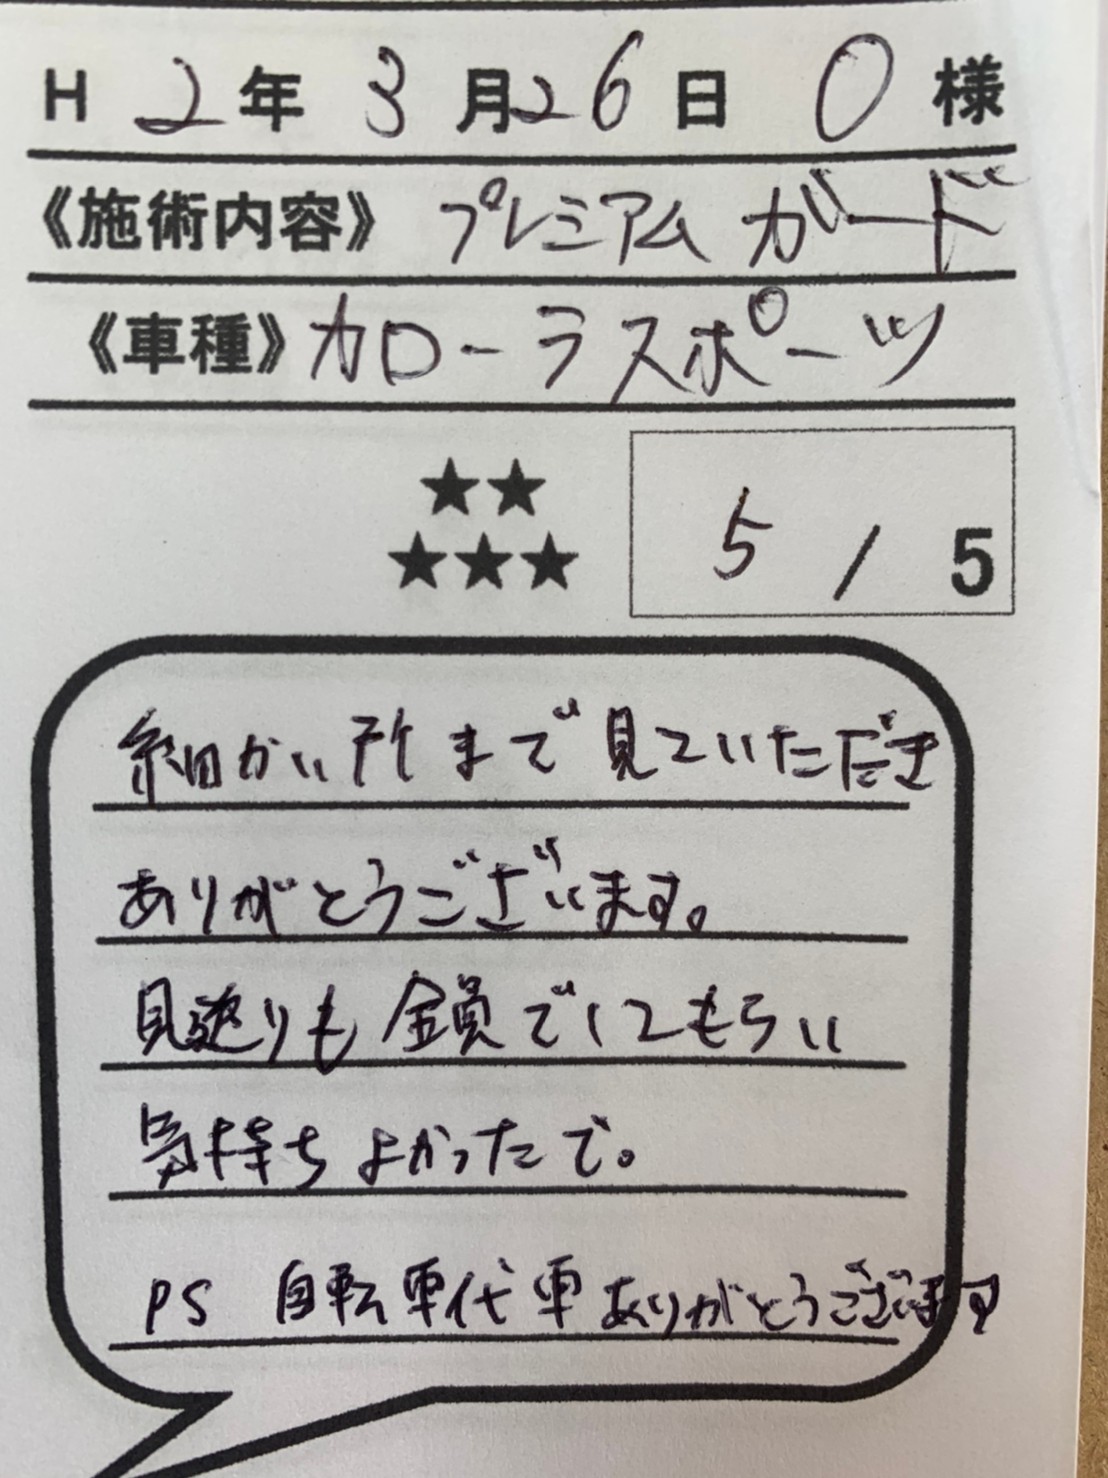 H 2年 3月26日 O 様
《施術内容》 プレミアム ガード
《車種》 カローラスポーツ
★★
★★★
5 / 5
細かい所まで見ていただき
ありがとうございます。
見返りも全員でしてもらい
気持ちよかったで。
PS 自転車代車ありがとうございます